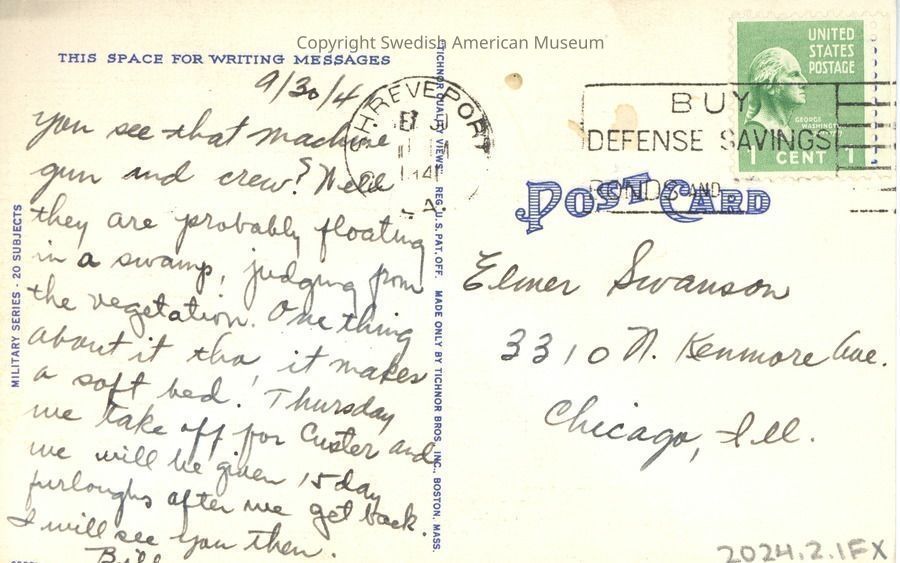 Copyright Swedish American Museum
THIS SPACE FOR WRITING MESSAGES
9/30/4
You see that machine
gun and crew? Well
they are probably floating
in a swamp, judging from
the vegetation. One thing
about it tho it makes
a soft bed! Thursday
we take off for Custer and
we will be given 15 day
furloughs after we get back.
I will see you then.
Bill
MILITARY SERIES - 20 SUBJECTS
"TICHNOR QUALITY VIEWS" REG. U. S. PAT. OFF. MADE ONLY BY TICHNOR BROS., INC., BOSTON, MASS.
SHREVEPORT
LA.
BUY
DEFENSE SAVINGS
BONDS AND
UNITED
STATES
POSTAGE
GEORGE
WASHINGTON
1 CENT 1
POST CARD
Elmer Swanson
3310 N. Kenmore Ave.
Chicago, Ill.
2024.2.1FX